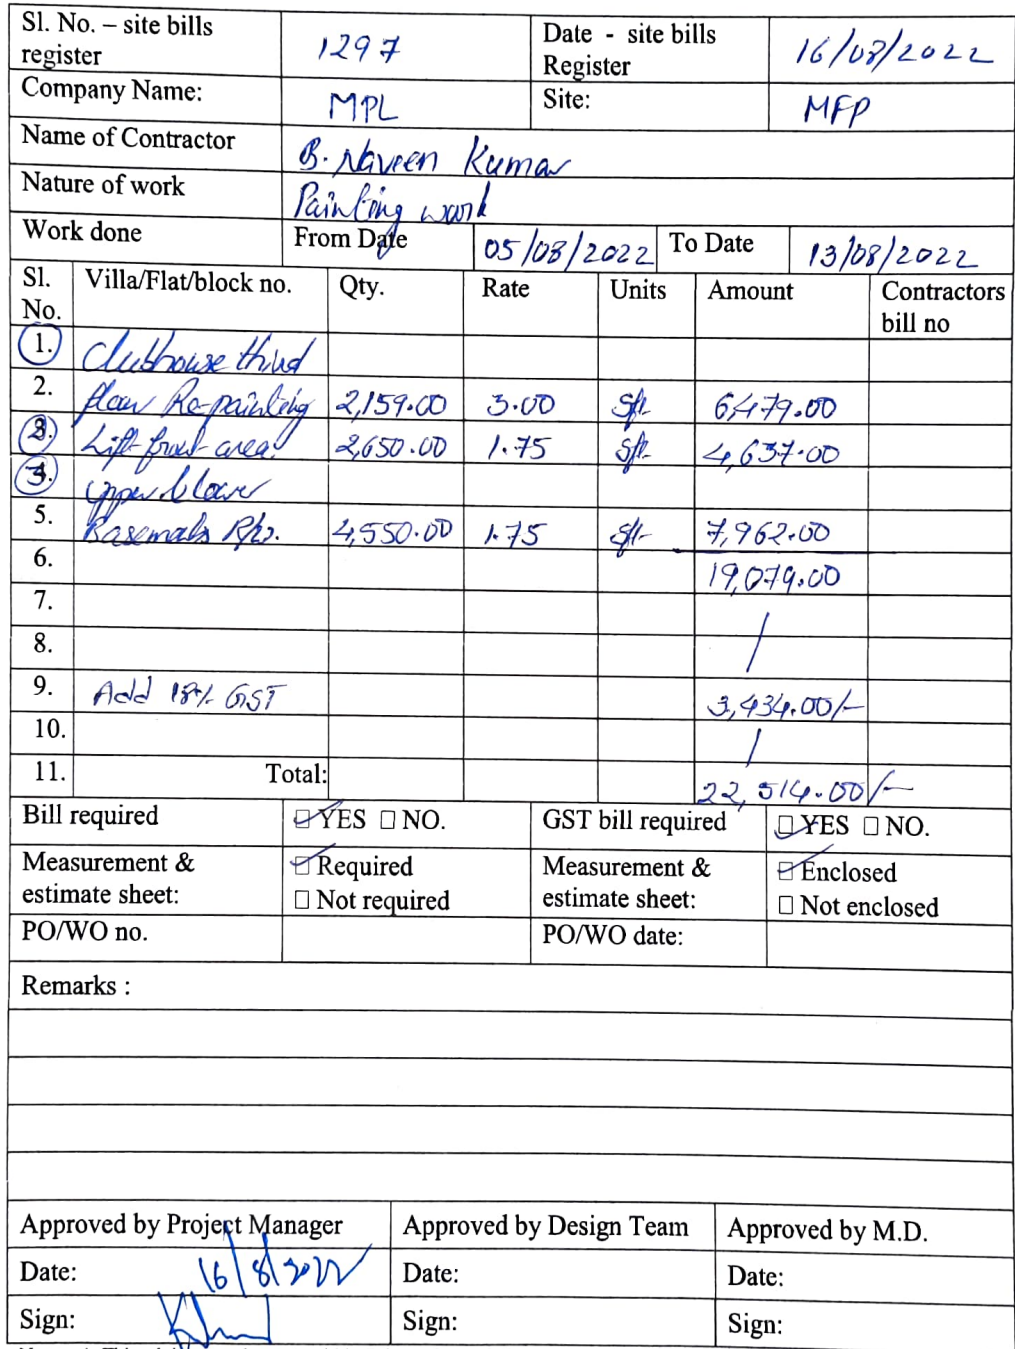 Sl. No. – site bills register 1297 Date - site bills Register 16/08/2022
Company Name: MPL Site: MFP
Name of Contractor B. Naveen Kumar
Nature of work Painting work
Work done From Date 05/08/2022 To Date 13/08/2022
Sl. No. Villa/Flat/block no. Qty. Rate Units Amount Contractors bill no
1. Clubhouse third
2. floor Re-painting 2,159.00 3.00 Sft 6,479.00
3. Lift front area 2,650.00 1.75 Sft 4,637.00
3. upper & lower
5. Basements 4,550.00 1.75 Sft 7,962.00
6. 19,079.00
7.
8.
9. Add 18% GST 3,434.00/-
10.
11. Total: 22,514.00/-
Bill required YES NO. GST bill required YES NO.
Measurement & estimate sheet: Required Not required Measurement & estimate sheet: Enclosed Not enclosed
PO/WO no. PO/WO date:
Remarks :
Approved by Project Manager Approved by Design Team Approved by M.D.
Date: 16/8/2022 Date: Date:
Sign: Sign: Sign: